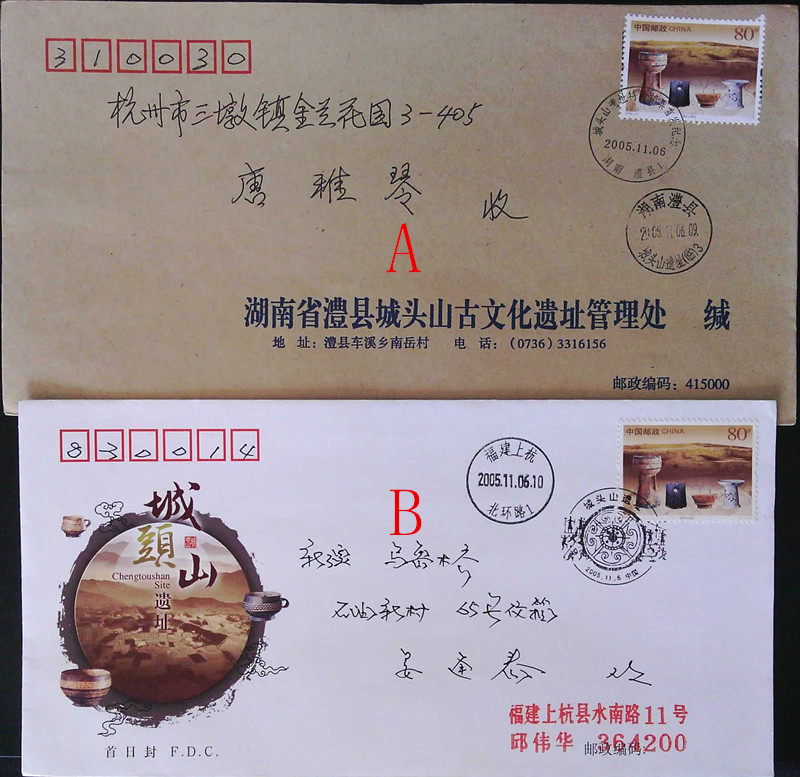 310030
中国邮政 CHINA 80分
杭州市三墩镇金兰花园3-405
2005.11.06
湖南 澧县1
唐雅琴 收
湖南澧县
2005.11.06.09
城头山遗址(临)3
A
湖南省澧县城头山古文化遗址管理处 缄
地 址：澧县车溪乡南岳村 电 话：(0736) 3316156
邮政编码：415000
830014
福建上杭
2005.11.06.10
北环路1
中国邮政 CHINA 80分
B
城头山遗址
2005.11.6 中国
城頭山
Chengtoushan
Site
遗址
新疆 乌鲁木齐
石油新村 65号信箱
收
福建上杭县水南路11号
邱伟华 364200
邮政编码：
首日封 F.D.C.